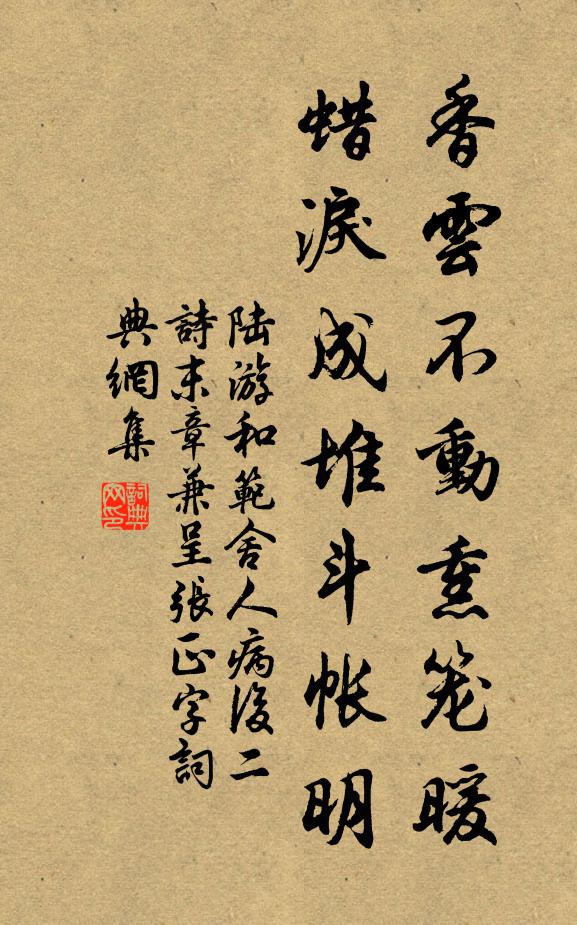 香雲不動熏笼暖
蜡淚成堆斗帐明
陆游和範舍人病後二
詩末章兼呈張正字詞
典網集
詞典
网印